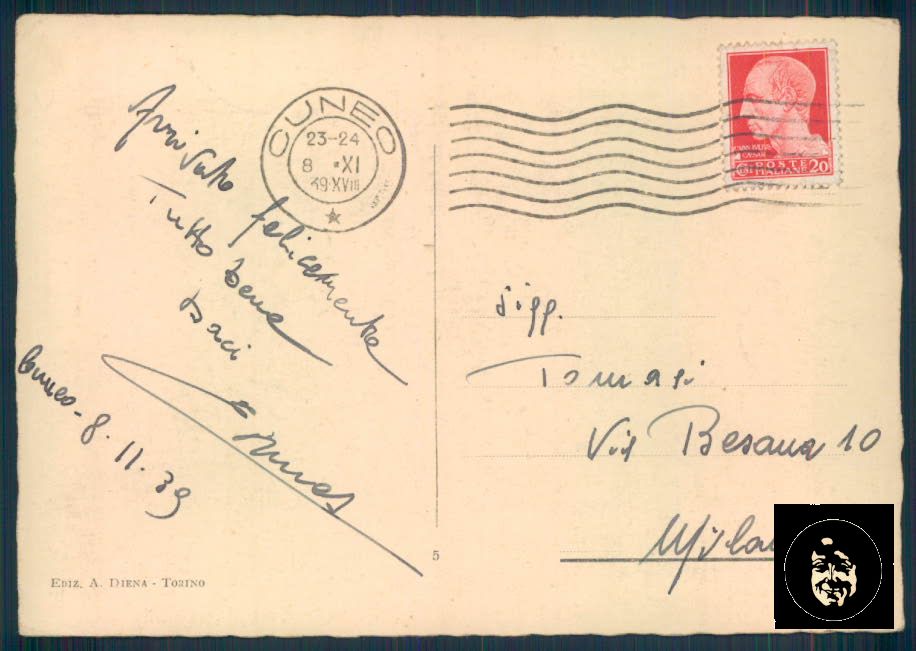 Arrivato
felicemente
Tutto bene
baci
Cuneo - 8.11.39
EDIZ. A. DIENA - TORINO
CUNEO
23-24
8 · XI
39·XVIII
5
POSTE
ITALIANE 20
Sigg.
Tomasi
Via Besana 10